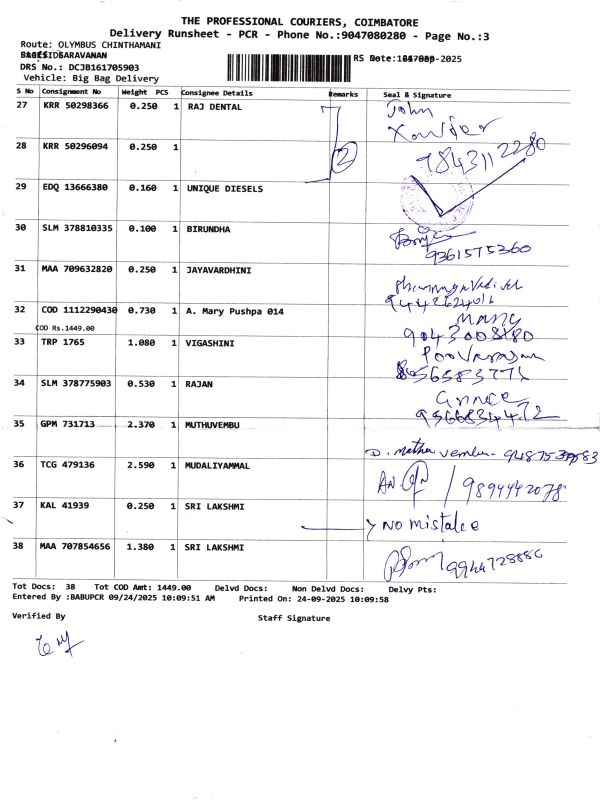 THE PROFESSIONAL COURIERS, COIMBATORE
Delivery Runsheet - PCR - Phone No.:9047080280 - Page No.:3
Route: OLYMBUS CHINTHAMANI
DRS No.: DCJB161705903
Vehicle: Big Bag Delivery
S No Consignment No Weight PCS Consignee Details Remarks Seal & Signature
27 KRR 50298366 0.250 1 RAJ DENTAL John
28 KRR 50296094 0.250 1 2 7843112280
29 EDQ 13666380 0.160 1 UNIQUE DIESELS
30 SLM 378810335 0.100 1 BIRUNDHA 9361575360
31 MAA 709632820 0.250 1 JAYAVARDHINI
32 COD 1112290430 0.730 1 A. Mary Pushpa 014 Mary
COD Rs.1449.00
33 TRP 1765 1.080 1 VIGASHINI
34 SLM 378775903 0.530 1 RAJAN
35 GPM 731713 2.370 1 MUTHUVEMBU
36 TCG 479136 2.590 1 MUDALIYAMMAL 9894442078
37 KAL 41939 0.250 1 SRI LAKSHMI No mistake
38 MAA 707854656 1.380 1 SRI LAKSHMI
Tot Docs: 38 Tot COD Amt: 1449.00 Delvd Docs: Non Delvd Docs: Delvy Pts:
Entered By :BABUPCR 09/24/2025 10:09:51 AM Printed On: 24-09-2025 10:09:58
Verified By Staff Signature